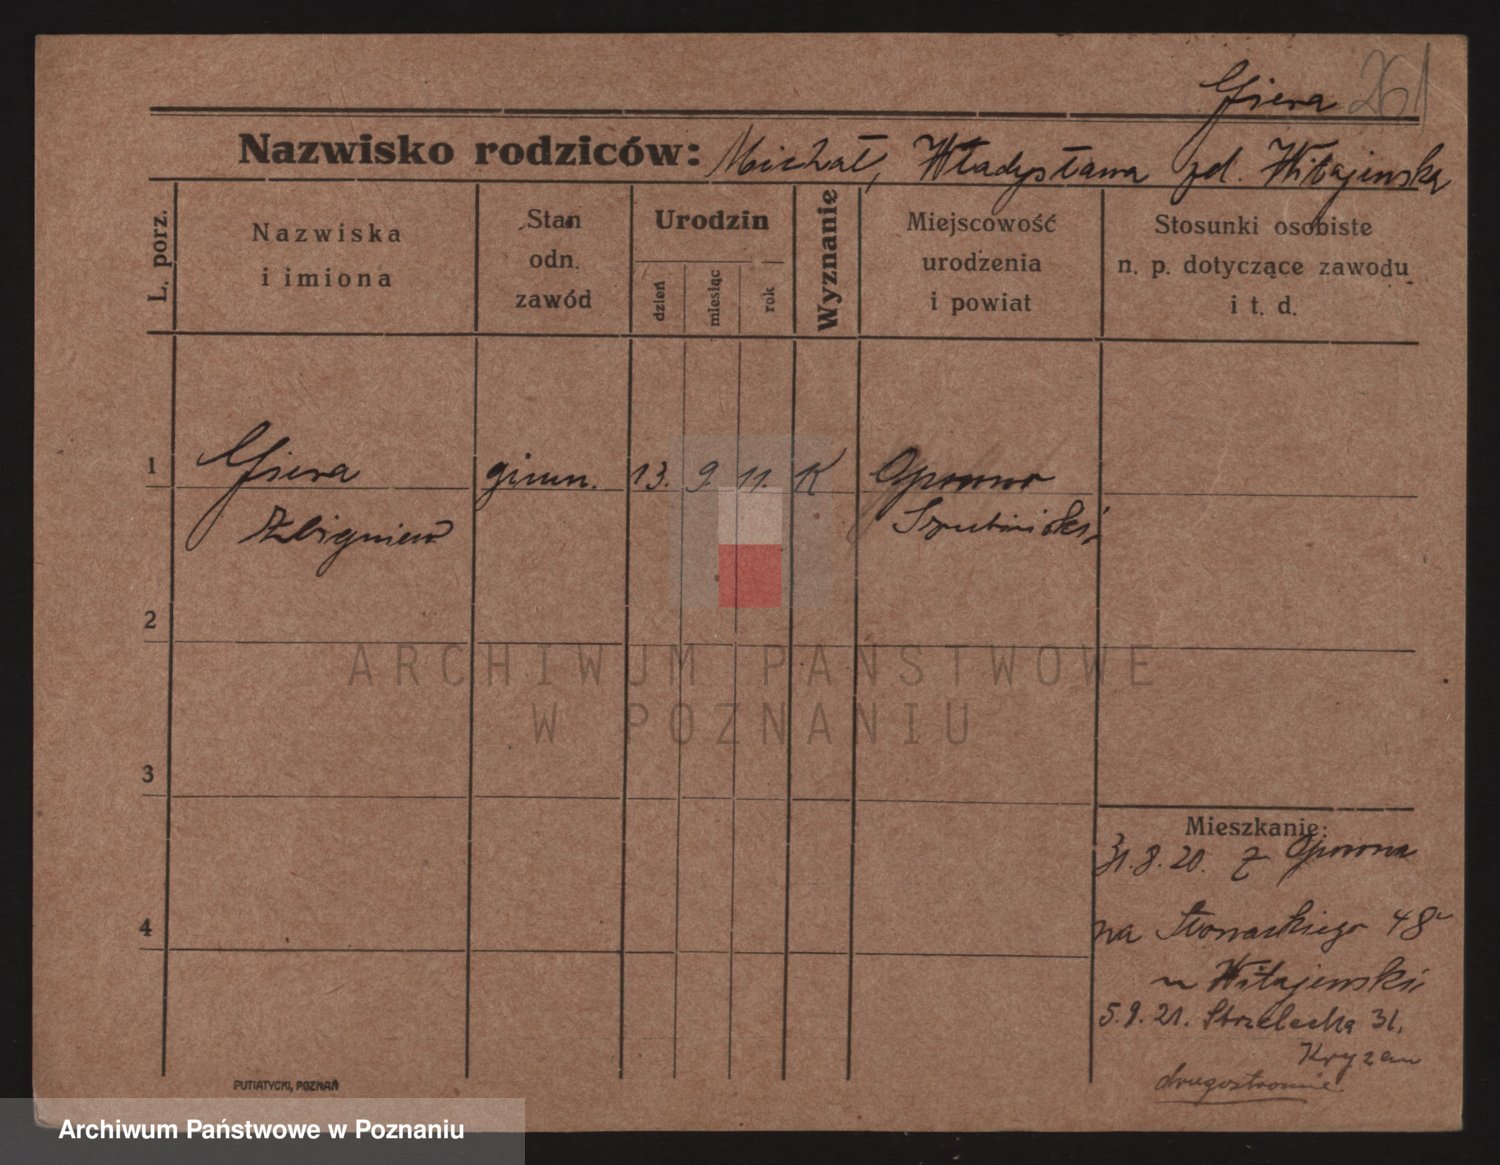 Giera 261
Nazwisko rodziców: Michał, Władysława zd. Witajewska
L. porz.
Nazwiska
i imiona
Stan
odn.
zawód
Urodzin
dzień
miesiąc
rok
Wyznanie
Miejscowość
urodzenia
i powiat
Stosunki osobiste
n. p. dotyczące zawodu
i t. d.
1 Giera gimn. 13. 9. 11. K Oporowo
Zbigniew Szubiński
2
3
4
Mieszkanie:
31.8.20. z Oporowa
na Słowackiego 48
u Witajewski
5.9.21. Strzelecka 31.
Kryzan
drugostronnie
PUTIATYCKI, POZNAŃ
ARCHIWUM PAŃSTWOWE
W POZNANIU
Archiwum Państwowe w Poznaniu